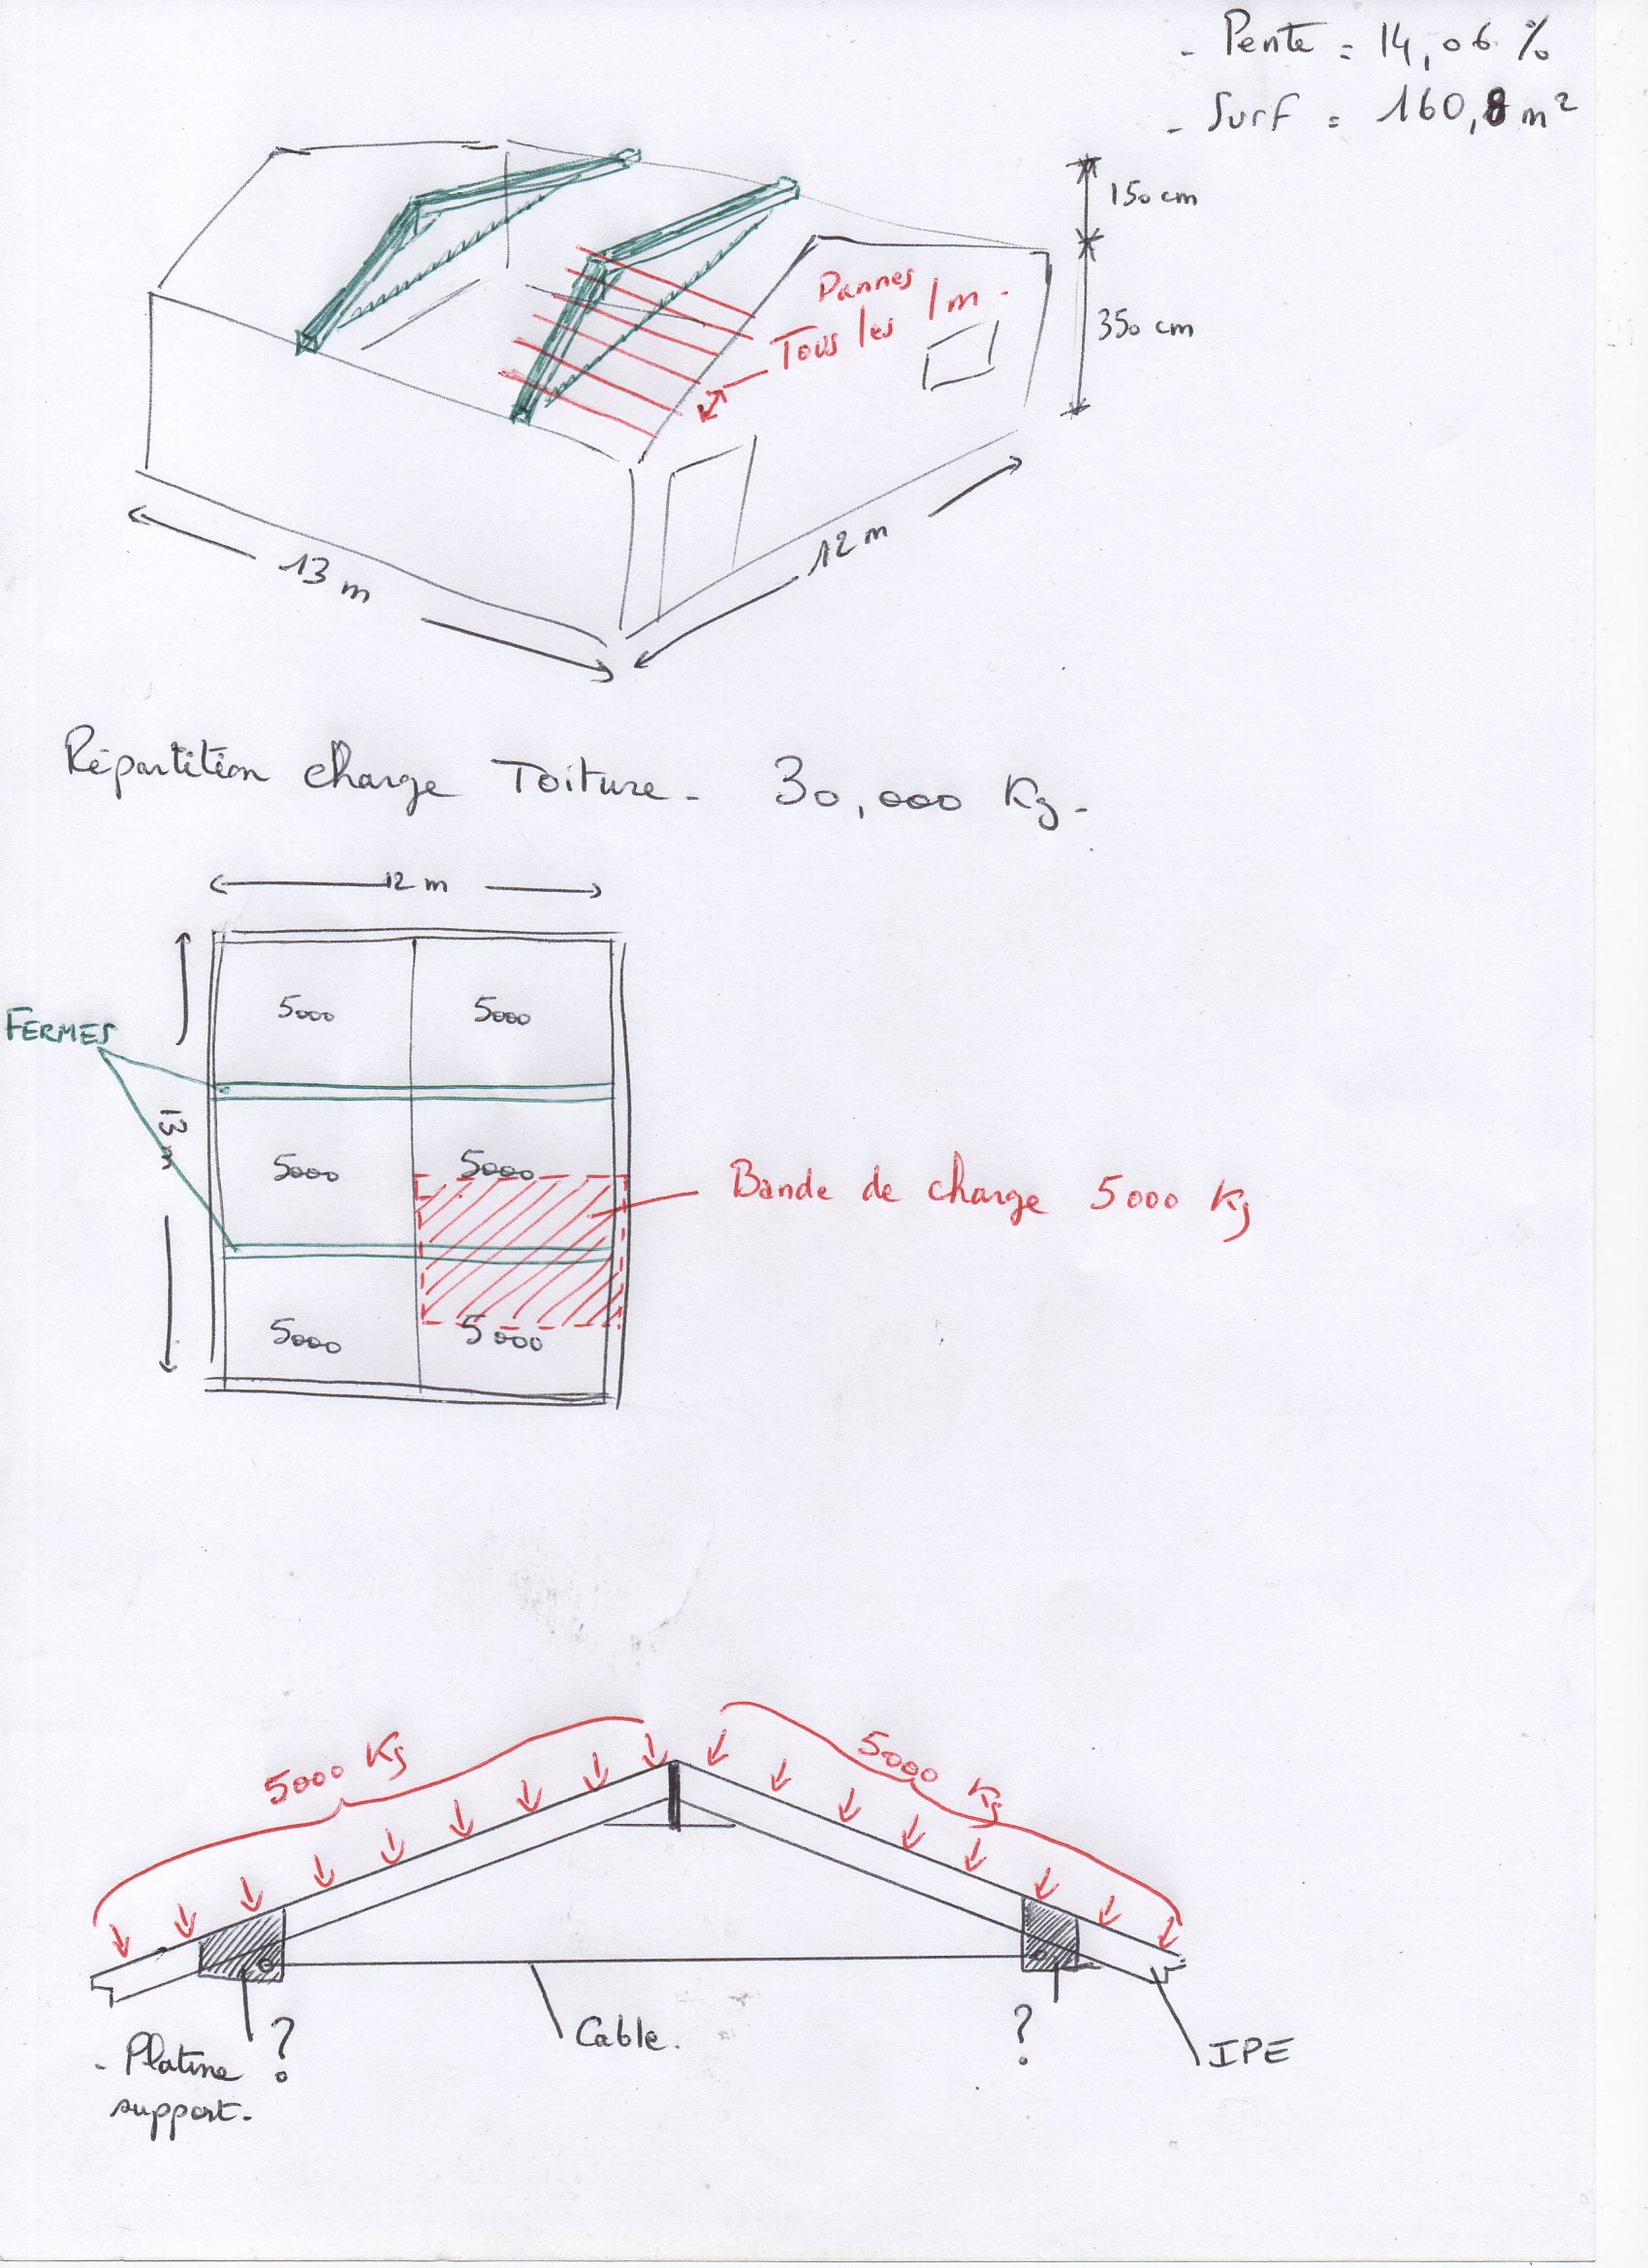 - Pente = 14,06 %
- Surf = 160,8 m²
150 cm
350 cm
Pannes
Tous les 1 m.
13 m
12 m
Répartition charge Toiture - 30,000 Kg -
12 m
5000 5000
FERMES
13 m
5000 5000
Bande de charge 5000 Kg
5000 5000
5000 Kg
5000 Kg
- Platine ?
support.
Cable.
?
IPE